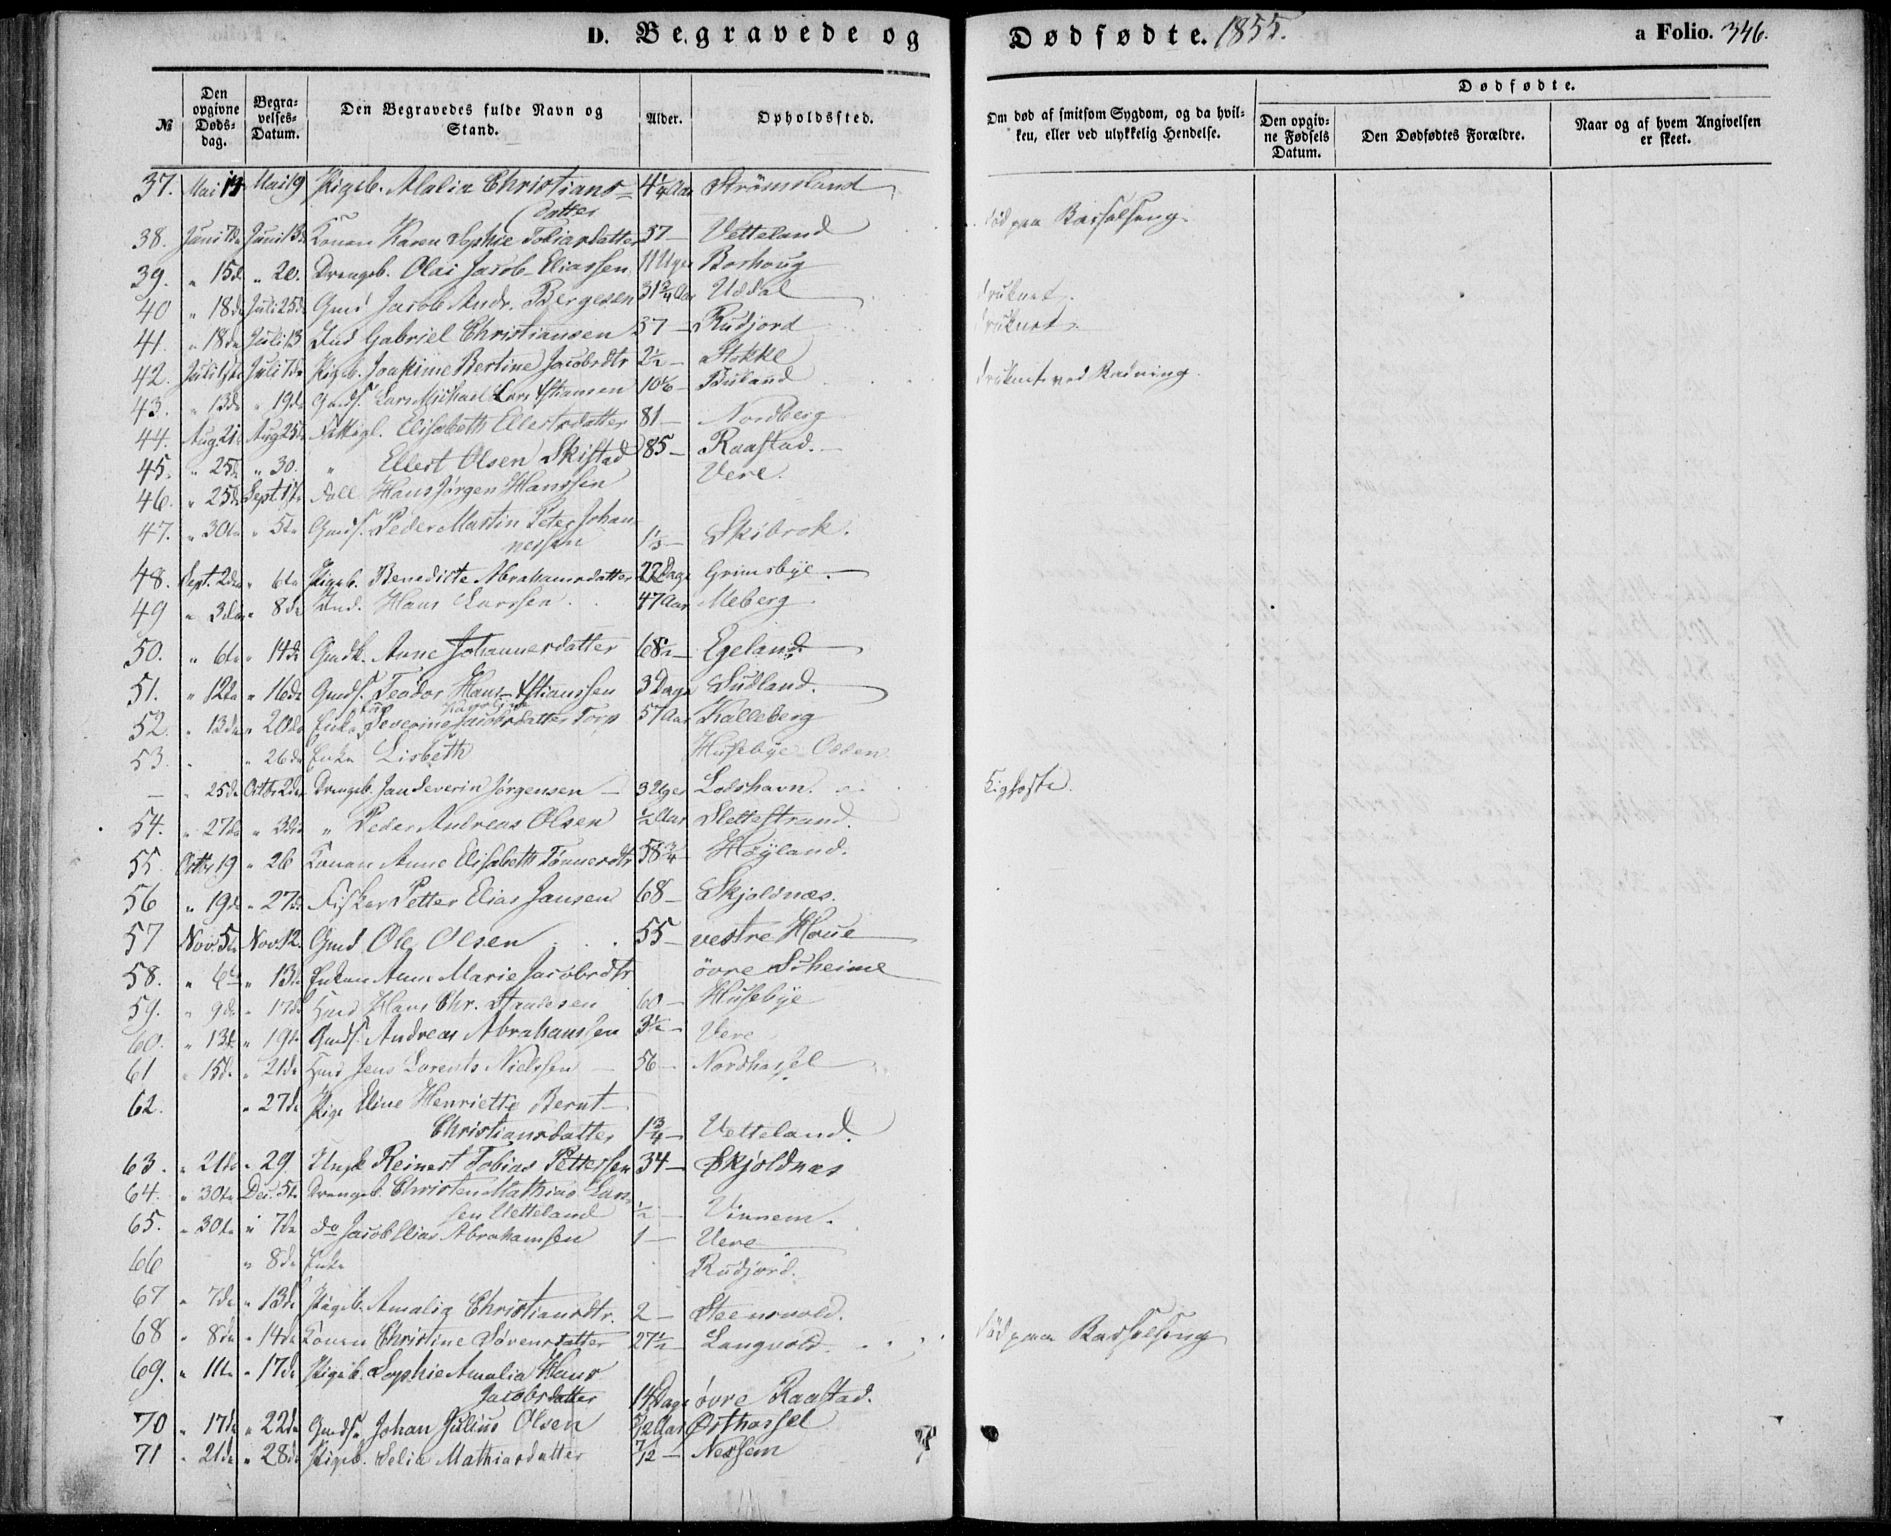 D. Begravede og
Dødfødte. 1855.
a Folio. 346.
№
Den opgivne Døds-dag.
Begra-velses-Datum.
Den Begravedes fulde Navn og Stand.
Alder.
Opholdssted.
Om død af smitsom Sygdom, og da hvil-ken, eller ved ulykkelig Hendelse.
Dødfødte.
Den opgiv-ne Fødsels Datum.
Den Dødfødtes Forældre.
Naar og af hvem Angivelsen er skeet.
37. Mai 13 Mai 19 Pigeb. Malia Christians- 4 1/4 Aar Strømsland
datter
38. Juni 7de Juni 13de Konen Karen Sophie Tobiasdatter 37 – Vetteland død paa Barselseng.
39. " 15de " 20. Drengeb. Olai Jacob Eliassen 11 Uger Borhoug
40 " 18de Juli 25de Gmd Jacob Andr. Bergesen 31 3/4 Aar Uddal druknet.
41. " 18de Juli 13 Ind Gabriel Christiansen 37 – Rudjord druknet.
42. Juli Juli Pigeb. Joakime Bertine Jacobsdtr 2 1/2 – Stokke
43. " 13de " 19de Gmds. Lars Michael 10 – Buland druknet ved Badning.
44. Aug 21 Aug 25 Elisabeth Ellertsdatter 81 – Nordberg
45. " 25de " 30. " Ellert Olsen Skistad 85 – Raastad.
46. " 25de Sept. 1ste Hans Jørgen Hanssen Vere.
47. " 30te " 5te Gmds. Peder Martin Peter Johan-
nessen 1 1/3 – Skibrok.
48. Sept. 2den " 6te Pigeb. Benedicte Abrahamsdatter 22 Dage Grimsbye.
49 " 3die " 8de Hans Larssen 47 Aar Meberg
50. " 6te " 14de Gmdk. Anne Johannesdatter 68 1/2 – Egeland
51. " 12te " 16de Gmds. Teodor Hans Xstianssen 3 Dage Sudland.
52. " 13de " 20de Enke Severine Jacobsdatter Torp 57 Aar Kalleberg
53. " 26de Enke Lisbeth Husebye Odden
– " 25de Octbr 2den Drengeb. Jan Severin Jørgensen – 3 Uger Lodshavn. Kighoste.
54. " 27de " 3die " Peder Andreas Olsen 1/2 Aar Slettestrand.
55. Octbr 19 " 26 Konen Anne Elisabeth Tønnesdtr 58 3/4 Høyland.
56 " 19de " 27de Fisker Petter Elias Jansen 68 – Skjoldnæs.
57 Nov 5te Nov 12. Gmd Ole Olsen 55 – vestre Houe
58. " 6te " 13de Enken Anne Marie Jacobsdtr øvre
59. " 9de " 17de Hans Chr. 60 – Husebye
60. " 13de " 19de Gmds. Andreas Abrahamssen 3 1/2 – Vere
61 " 15de " 21de Jens Lorents Nielssen – 56 – Nordhassel
62. " 27de Pige Eline Henriette Bernt-
Christiansdatter 1 3/4 – Vetteland.
63. " 21de " 29 Ungk Reinert Tobias Pettersen 34 – Skjoldnæs
64. " 30te Dec. 5te Drengeb. Christen Mathias Lars-
sen Vetteland 1/2 – Vinnem.
65. " 30te " 7de do Jacob Elias Abrahamsen 1 – Vere
66 " 8de Enke Rudjord.
67 " 7de " 13de Pigeb. Amalia Christiansdtr. 2 – Steensvold.
68 " 8de " 14de Konen Christine Sørensdatter 27 1/2 – Langvold. død paa Barselseng
69. " 11te " 17de Pigeb. Sophie Amalia Hans
Jacobsdatter 14 Dage øvre Raastad.
70 " 17de " 22de Gmds. Johan Julius Olsen Aar Østhassel
71 " 21de " 28de Pigeb. Selia Mathiasdatter 7/12 – Nessem